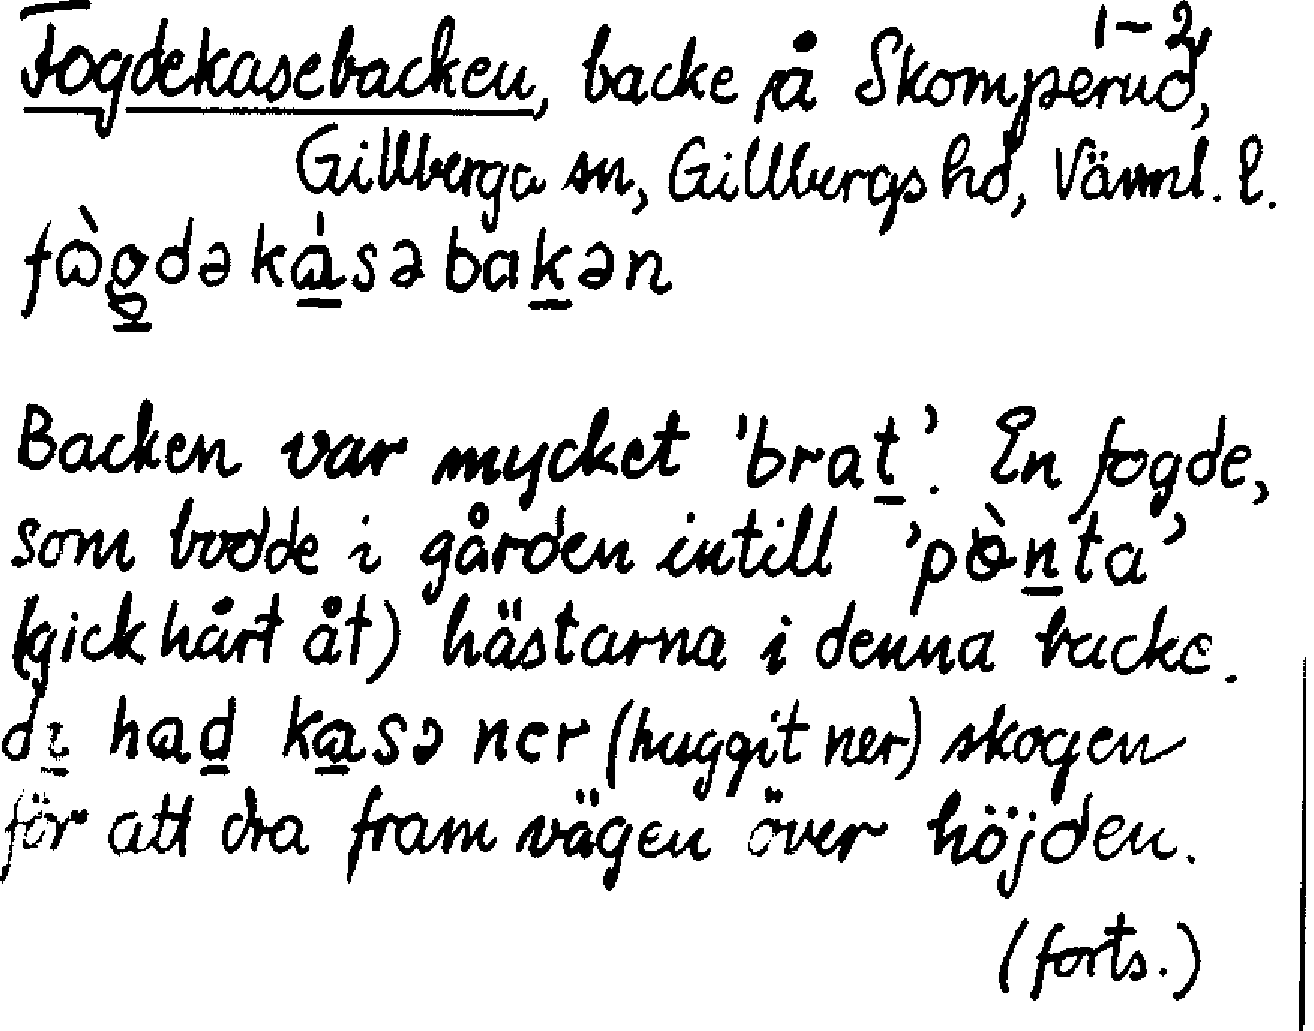 1-2,
Fogdekasebacken, backe på Skomperud,
Gillberga sn, Gillbergs hd, Värml. l.
fὼgdəkásəbakən
Backen var mycket 'brat'. En fogde,
som bodde i gården intill 'pònta'
(gick hårt åt) hästarna i denna backe.
di had kasə ner (huggit ner) skogen
för att dra fram vägen över höjden.
(forts.)